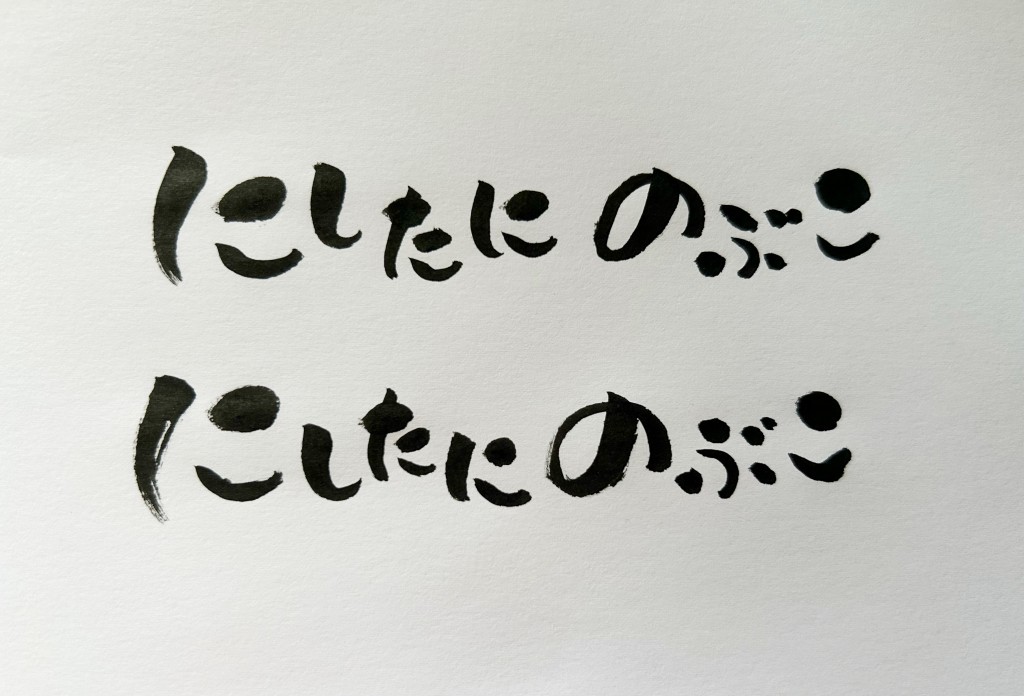 にしたに のぶこ
にしたに のぶこ